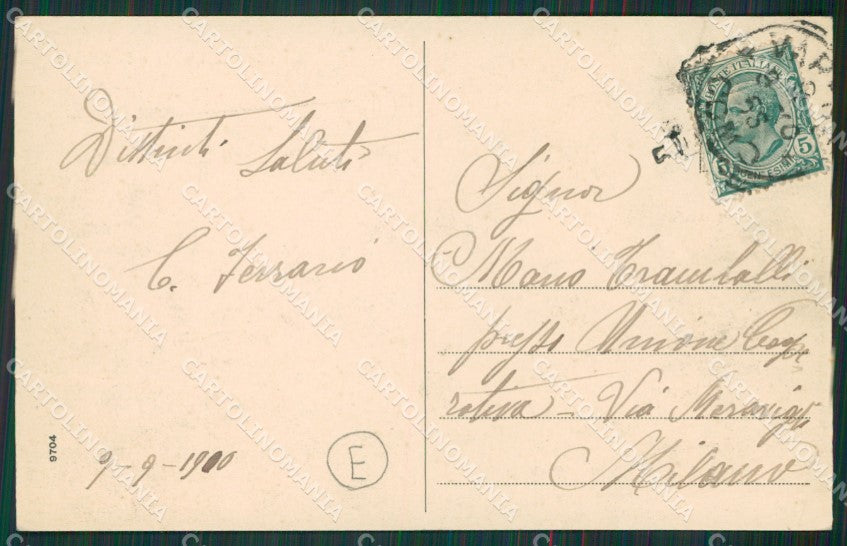 Distinti Saluti
C. Ferrario
9-9-1910
E
9704
Signor
Mario Tramballi
presso Unione Coop
rativa - Via Meravigli
Milano
ITALIANE
5
CARTOLINOMANIA